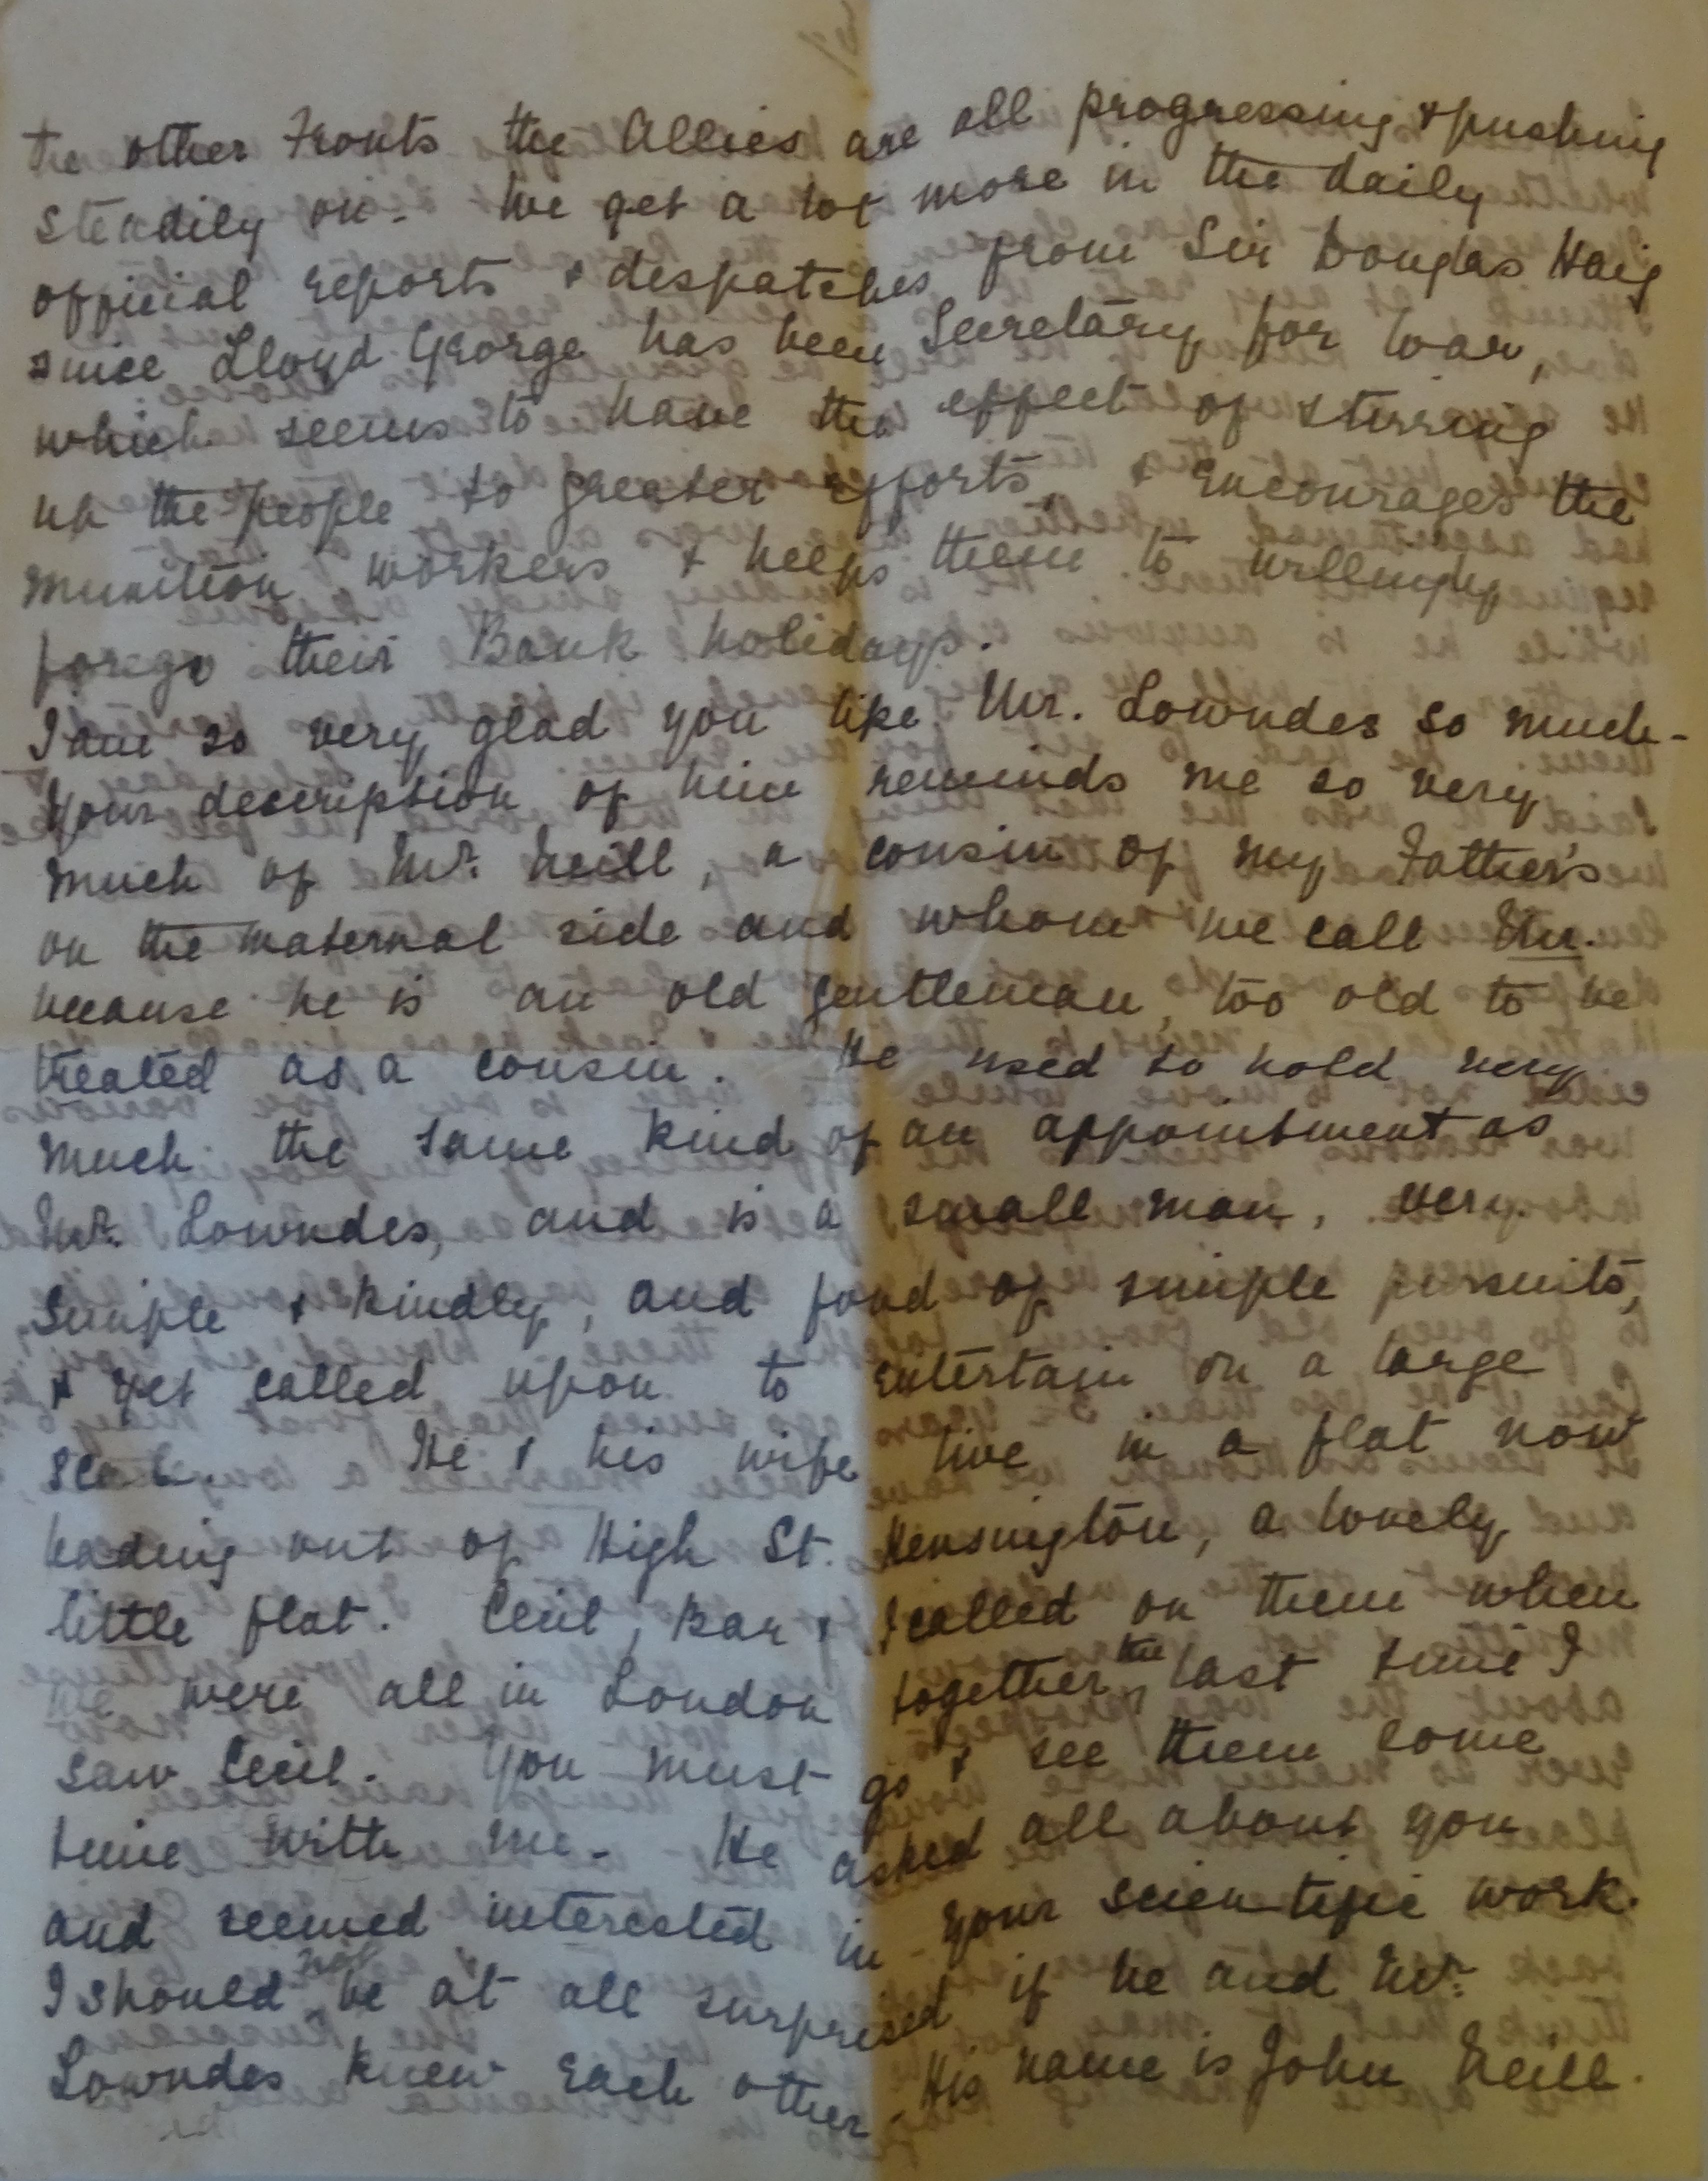 the other Fronts the Allies are all progressing & pushing
steadily on. We get a lot more in the daily
official reports & despatches from Sir Douglas Haig
since Lloyd George has been Secretary for War,
which seems to have the effect of stirring
up the people to greater efforts, & encourages the
munition workers & helps them to willingly
forego their Bank holidays.
I am so very glad you like Mr. Lowndes so much -
Your description of him reminds me so very
much of Mr. Neill, a cousin of my Father's
on the maternal side and whom we call Mr.
because he is an old gentleman, too old to be
treated as a cousin. He used to hold very
much the same kind of an appointment as
Mr. Lowndes, and is a small man, very
simple & kindly, and fond of simple pursuits,
& yet called upon to entertain on a large
scale. He & his wife live in a flat now
leading out of High St. Kensington, a lovely
little flat. Cecil, Bar & I called on them when
we were all in London together the last time I
saw Cecil. You must go & see them some
time with me. He asked all about you
and seemed interested in your scientific work.
I should not be at all surprised if he and Mr.
Lowndes knew each other - His name is John Neill.